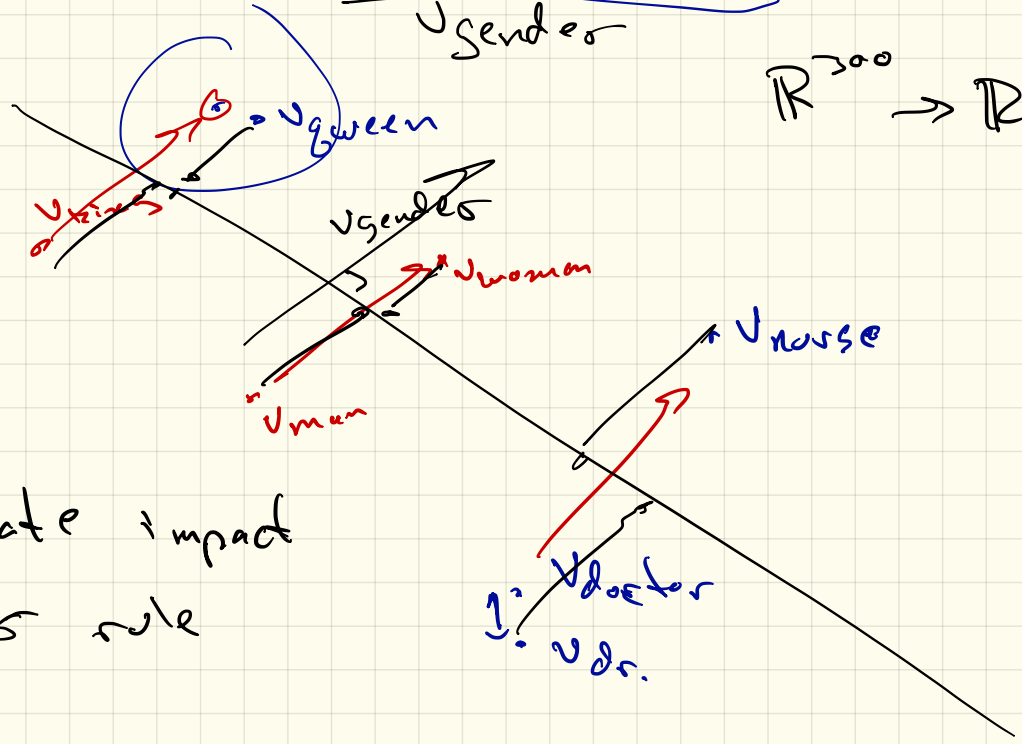 v gender
ℝ³⁰⁰ → ℝ
v queen
v king
v gender
v woman
v man
v nurse
ate impact
v doctor
s rule
v dr.